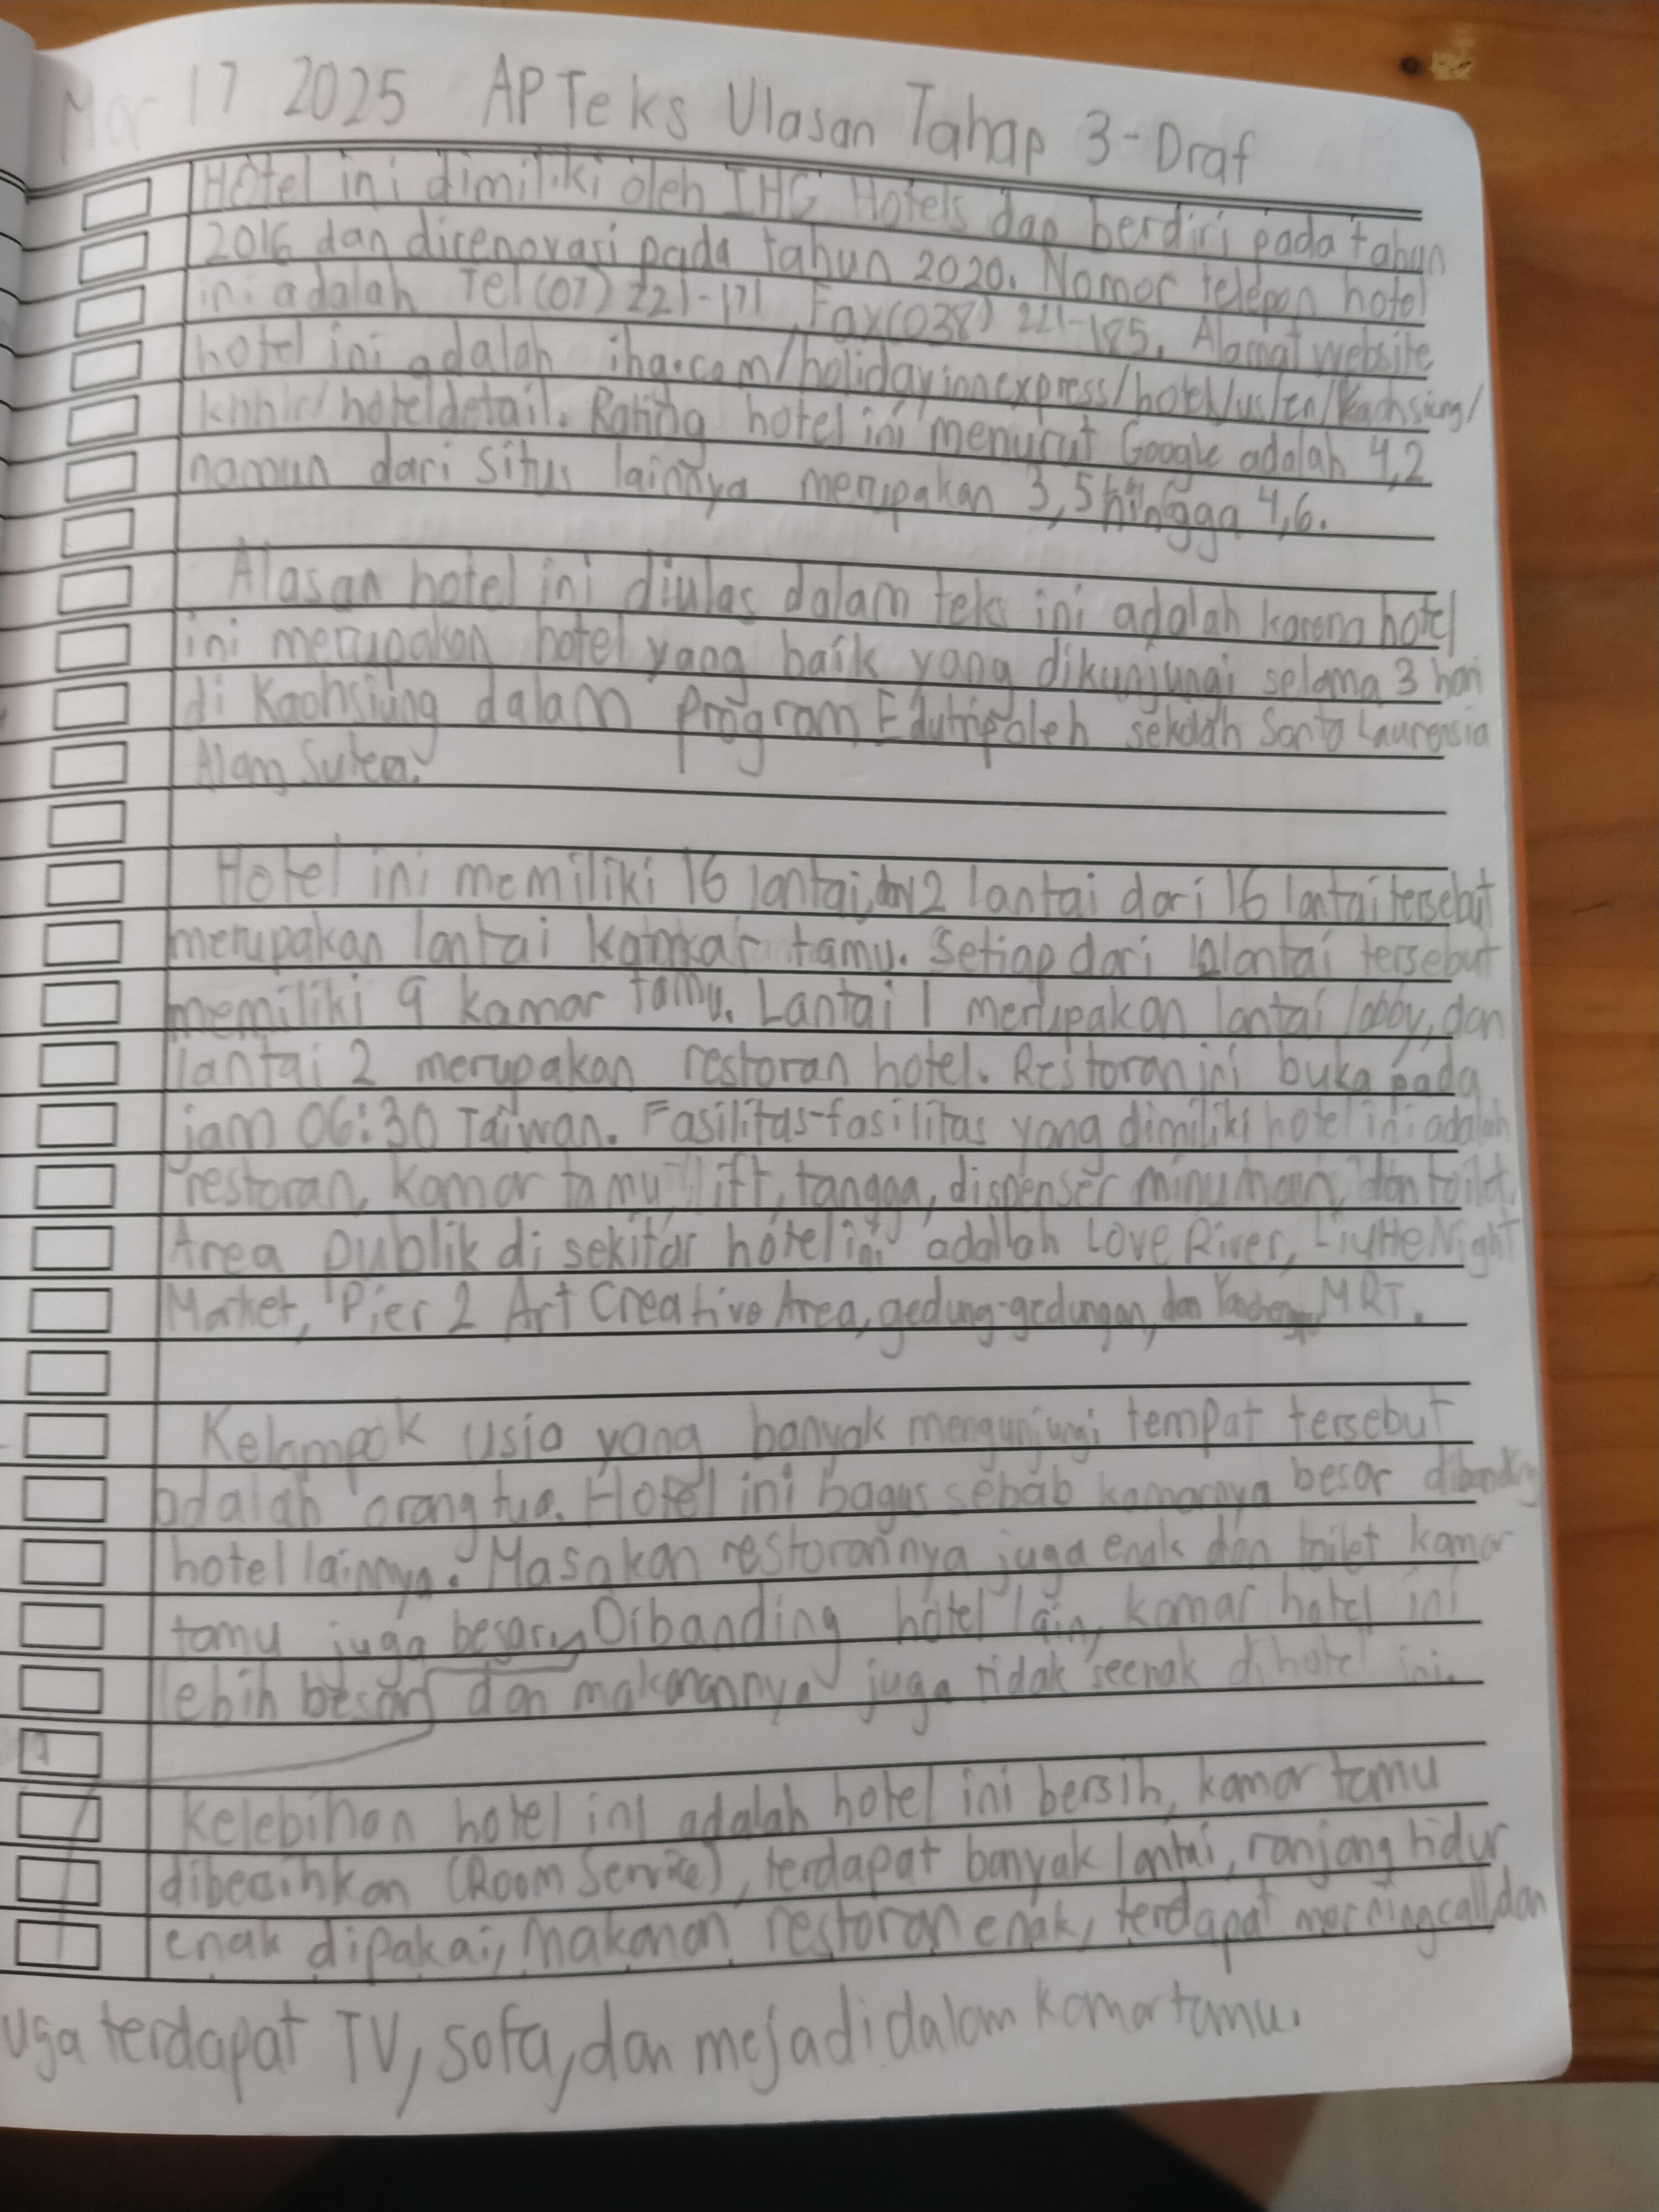 Mar 17 2025 AP Teks Ulasan Tahap 3-Draf
Hotel ini dimiliki oleh IHG Hotels dan berdiri pada tahun
2016 dan direnovasi pada tahun 2020. Nomor telepon hotel
ini adalah Tel(07) 221-171 Fax(038) 221-185. Alamat website
hotel ini adalah ihg.com/holidayinnexpress/hotel/us/en/kaohsiung/
/hoteldetail. Rating hotel ini menurut Google adalah 4,2
namun dari situs lainnya merupakan 3,5 hingga 4,6.
Alasan hotel ini diulas dalam teks ini adalah karena hotel
ini merupakan hotel yang baik yang dikunjungi selama 3 hari
di Kaohsiung dalam program Edutrip oleh sekolah Santo Laurensia
Alam Sutera.
Hotel ini memiliki 16 lantai, 12 lantai dari 16 lantai tersebut
merupakan lantai kamar tamu. Setiap dari 12 lantai tersebut
memiliki 9 kamar tamu. Lantai 1 merupakan lantai lobby, dan
lantai 2 merupakan restoran hotel. Restoran ini buka pada
jam 06:30 Taiwan. Fasilitas-fasilitas yang dimiliki hotel ini adalah
restoran, kamar tamu, lift, tangga, dispenser minuman, dan toilet.
Area publik di sekitar hotel ini adallah Love River, LiuHe Night
Market, Pier 2 Art Creative Area, gedung-gedungan, dan MRT.
Kelompok usia yang banyak mengunjungi tempat tersebut
adalah orang tua. Hotel ini bagus sebab kamarnya besar dibanding
hotel lainnya. Masakan restorannya juga enak dan toilet kamar
tamu juga besar. Dibanding hotel lain, kamar hotel ini
lebih besar dan makanannya juga tidak seenak dihotel ini.
Kelebihan hotel ini adalah hotel ini bersih, kamar tamu
dibersihkan (Room Service), terdapat banyak lantai, ranjang tidur
enak dipakai, makanan restoran enak, terdapat morning call dan
uga terdapat TV, sofa, dan meja didalam kamar tamu.